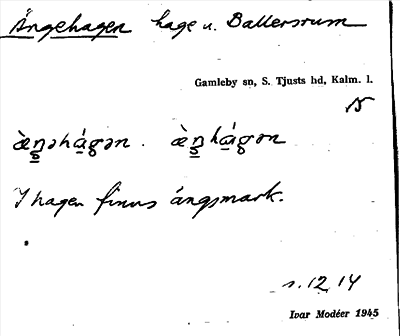 Ängehagen hage u. Ballersrum
Gamleby sn, S. Tjusts hd, Kalm. l.
I hagen finns ängsmark.
s. 12 14
Ivar Modéer 1945